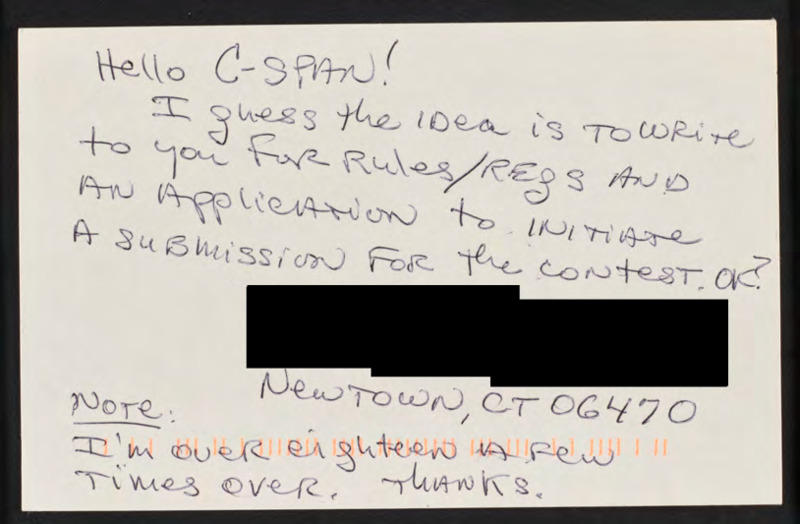 Hello C-SPAN!
I guess the IDea is TO WRite
to you FOR Rules/REGS AND
AN APPLICATION to INITIATe
A SUBMISSION FOR the CONTEST. OK?
NewTOWN, CT 06470
NOTE:
I'm over eighteen A Few
Times over. THANKS.